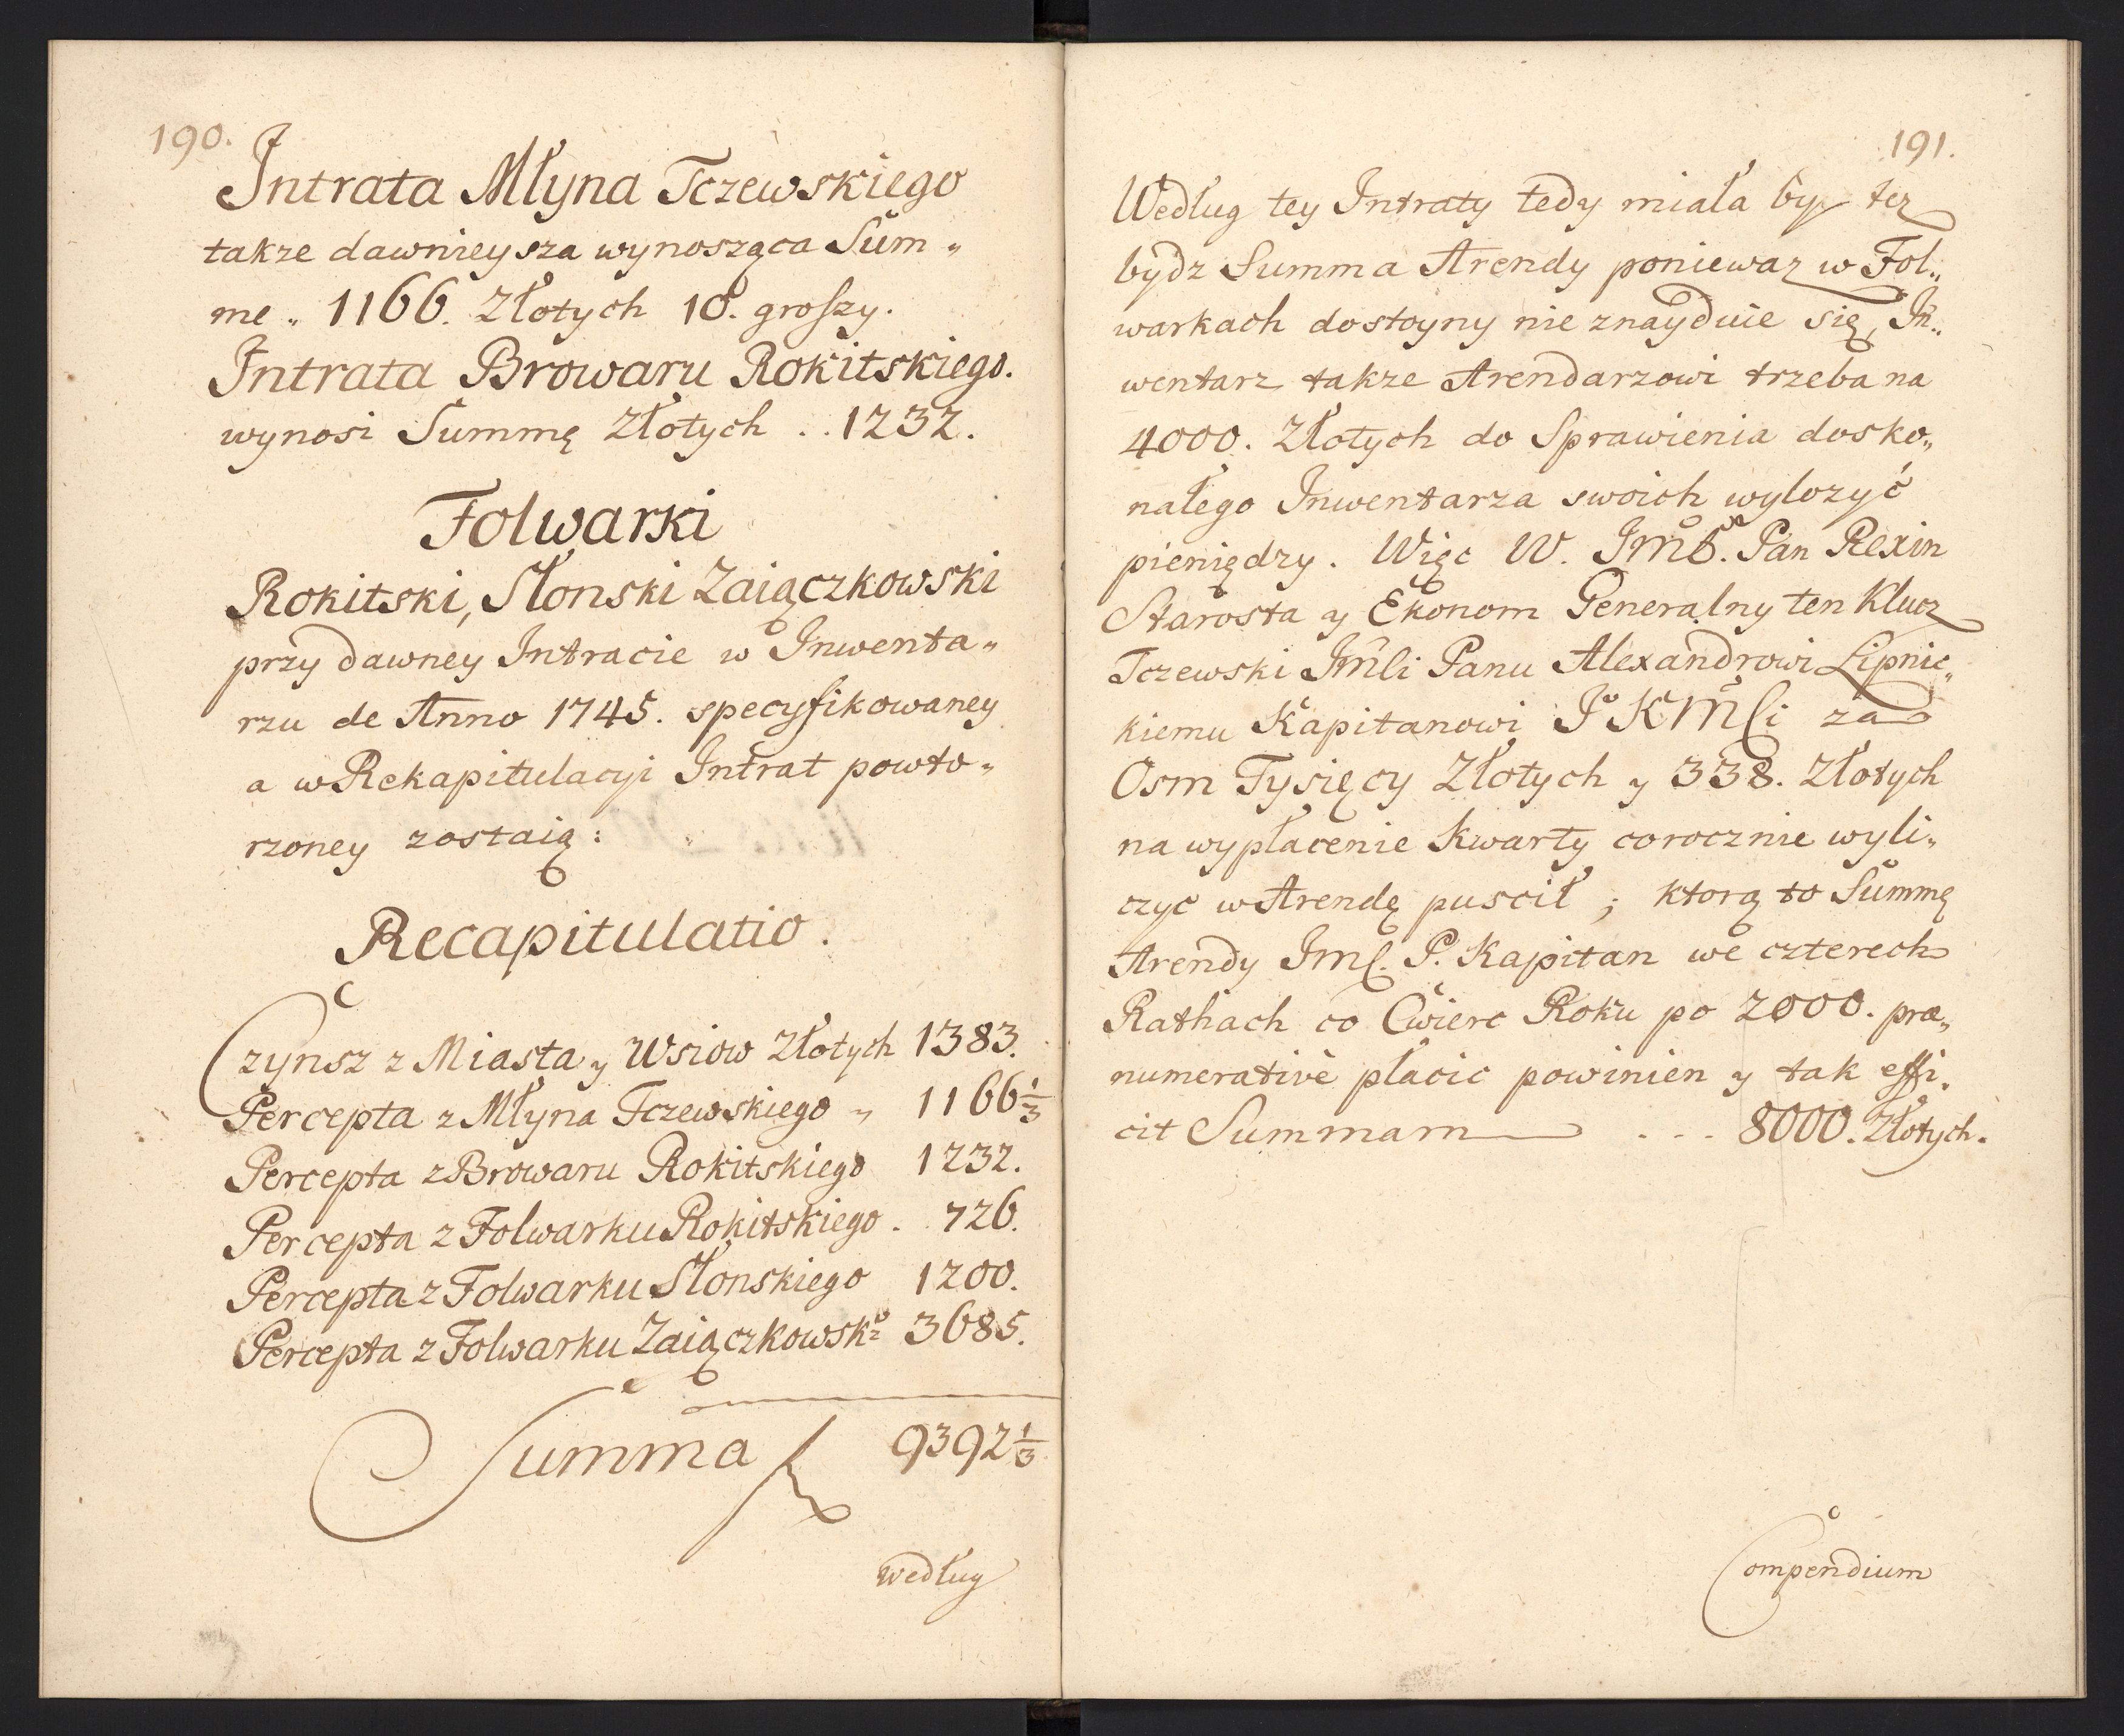 190.
Intrata Młyna Tczewskiego
takze dawnieysza wynosząca Sum„
me „ 1166. Złotych 10. groszy.
Intrata Browaru Rokitskiego.
wynosi Summę Złotych . . 1232.
Folwarki
Rokitski, Słonski Zaiączkowski
przy dawney Intracie w Inwenta„
rzu de Anno 1745. specyfikowaney
a w Rekapitulacyi Intrat powto„
rzoney zostaią :
Recapitulatio .
Czynsz z Miasta y Wsiow Złotych 1383.
Percepta z Młyna Tczewskiego „ 1166 1/3
Percepta z Browaru Rokitskiego 1232.
Percepta z Folwarku Rokitskiego . . 726.
Percepta z Folwarku Słonskiego 1200.
Percepta z Folwarku Zaiączkowsko 3685.
Summa f 9392 1/3
według
191.
Według tey Intraty tedy miała by tez
bydz Summa Arendy poniewaz w Fol„
warkach dostoyny nie znayduie się, In„
wentarz takze Arendarzowi trzeba na
4000. Złotych do Sprawienia dosko„
nałego Inwentarza swoich wylozyć
pieniędzy . Więc W. Pan Rexin
Starosta y Ekonom Generalny ten Klucz
Tczewski Jmśli Panu Alexandrowi Lipnic„
kiemu Kapitanowi J K Mści za
Osm Tysięcy Złotych y 338. Złotych
na wypłacenie Kwarty corocznie wyli„
czyc w Arendę puscił ; ktorą to Summę
Arendy Jmś. P. Kapitan we czterech
Rathach co Cwierc Roku po 2000. præ„
numerativè płacic powinien y tak effi„
cit Summam . . . 8000. Złotych.
Compendium